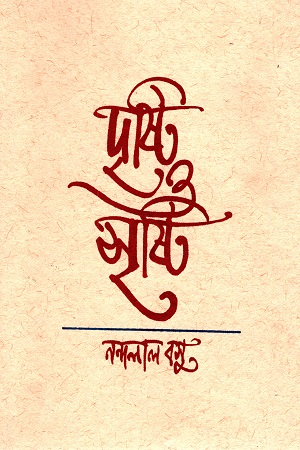 দৃষ্টি
ও
সৃষ্টি
নন্দলাল বসু